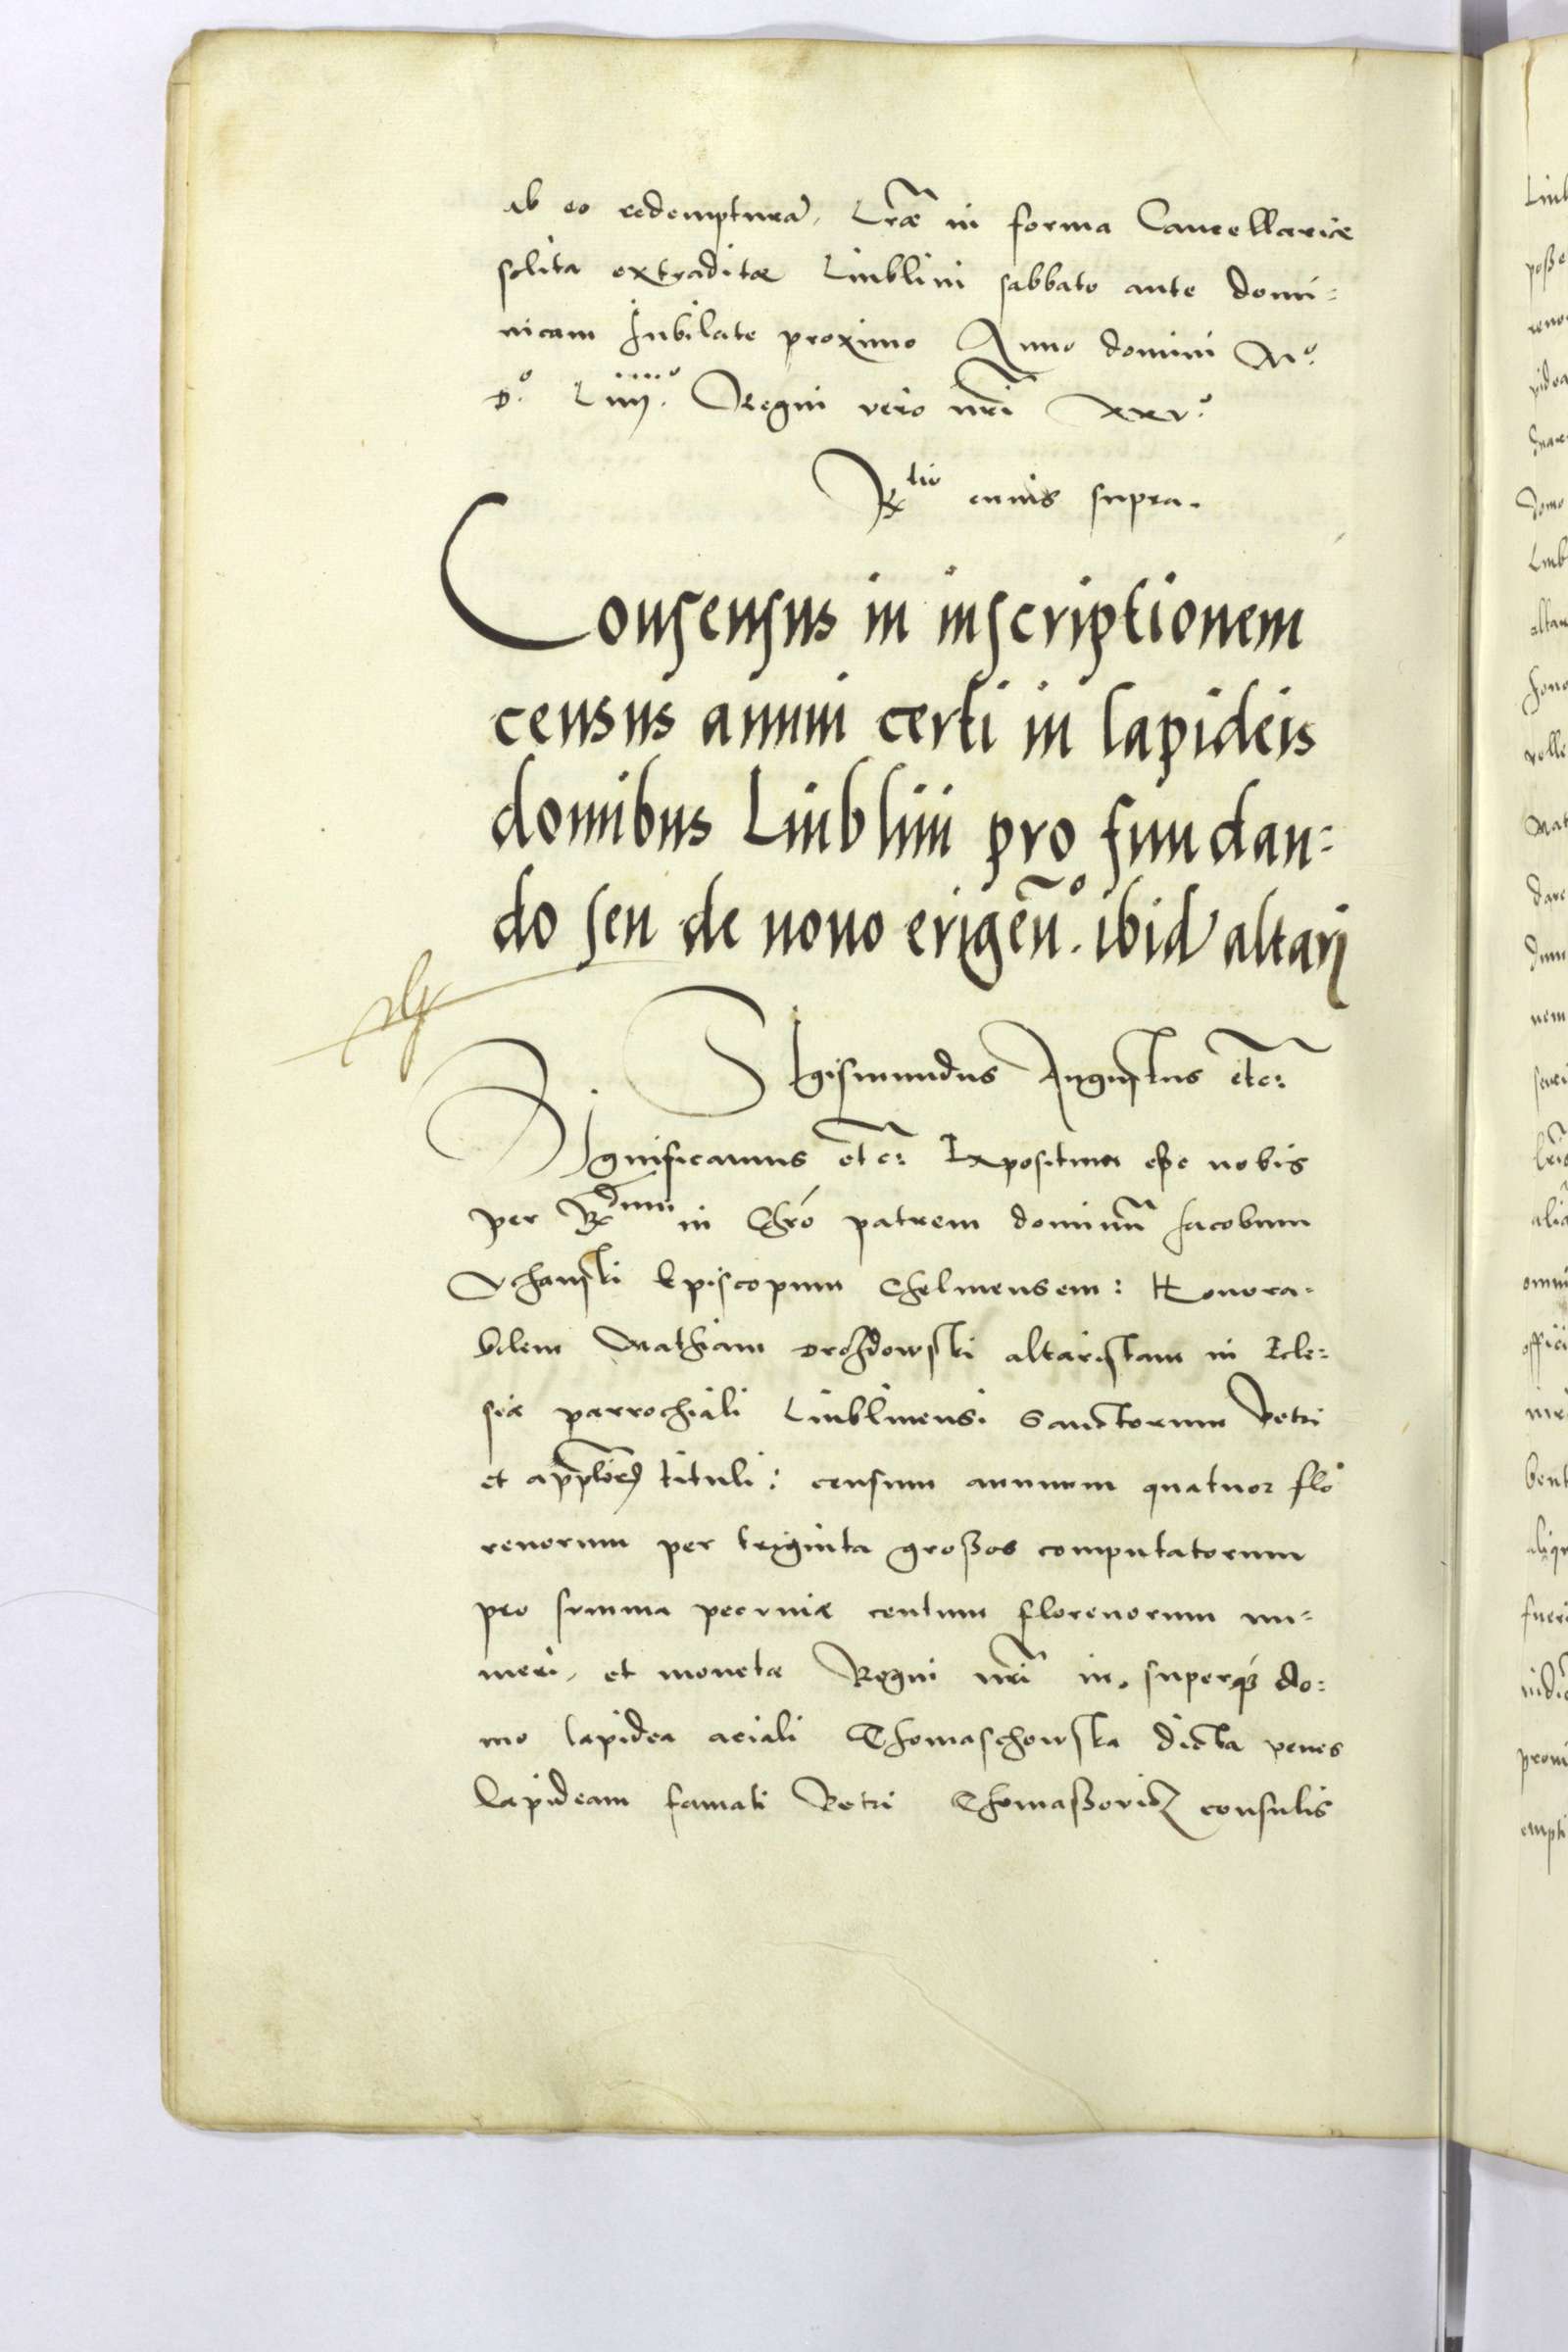 ab eo redemptura. Lrãe in forma Cancellariæ
solita extraditæ Liublini sabbato ante domi=
nicam Jubilate proximo Anno domini Mº.
Dº. Liiijº. Regni vero nrĩ xxvº.
Rtio cuius supra.
Consensus in inscriptionem
census annui certi in lapideis
domibus Liublini pro fundan=
do seu de nouo erigeñº. ibid altarj
SIgismundus Augustus etc:
SIgnificamus etc: Expositum esse nobis
per Rdum in Chrõ patrem dominũ Jacobum
Vchanski Episcopum Chelmensem: Honora=
bilem Mathiam altaristam in Eccle=
sia parrochiali Liublinensi Sanctorum Petri
et tituli: censum annuum quatuor flo
renorum per triginta grossos computatorum
pro summa pecuniæ centum florenorum nu=
meri, et monetæ Regni nrĩ in, superq3 do=
mo lapidea aciali Thomaschowska dicta penes
lapideam famati Petri Thomassovicz consulis